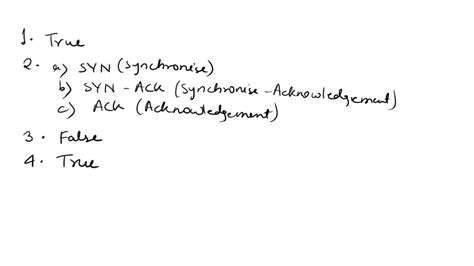 1. True
2. a) SYN (Synchronise)
b) SYN - ACK (Synchronise - Acknowledgement)
c) ACK (Acknowledgement)
3. False
4. True